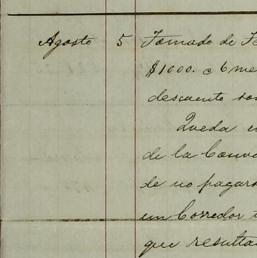 Agosto 5 Tomado de
$1000. a 6 me
descuento
Queda
de la
de no pagars
un Corredor
que resulta